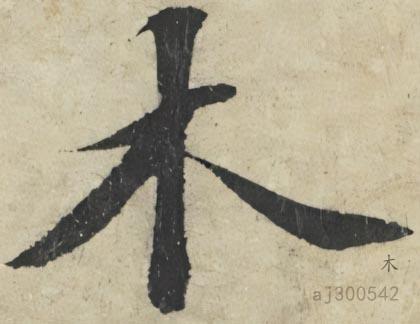 木
木
aj300542